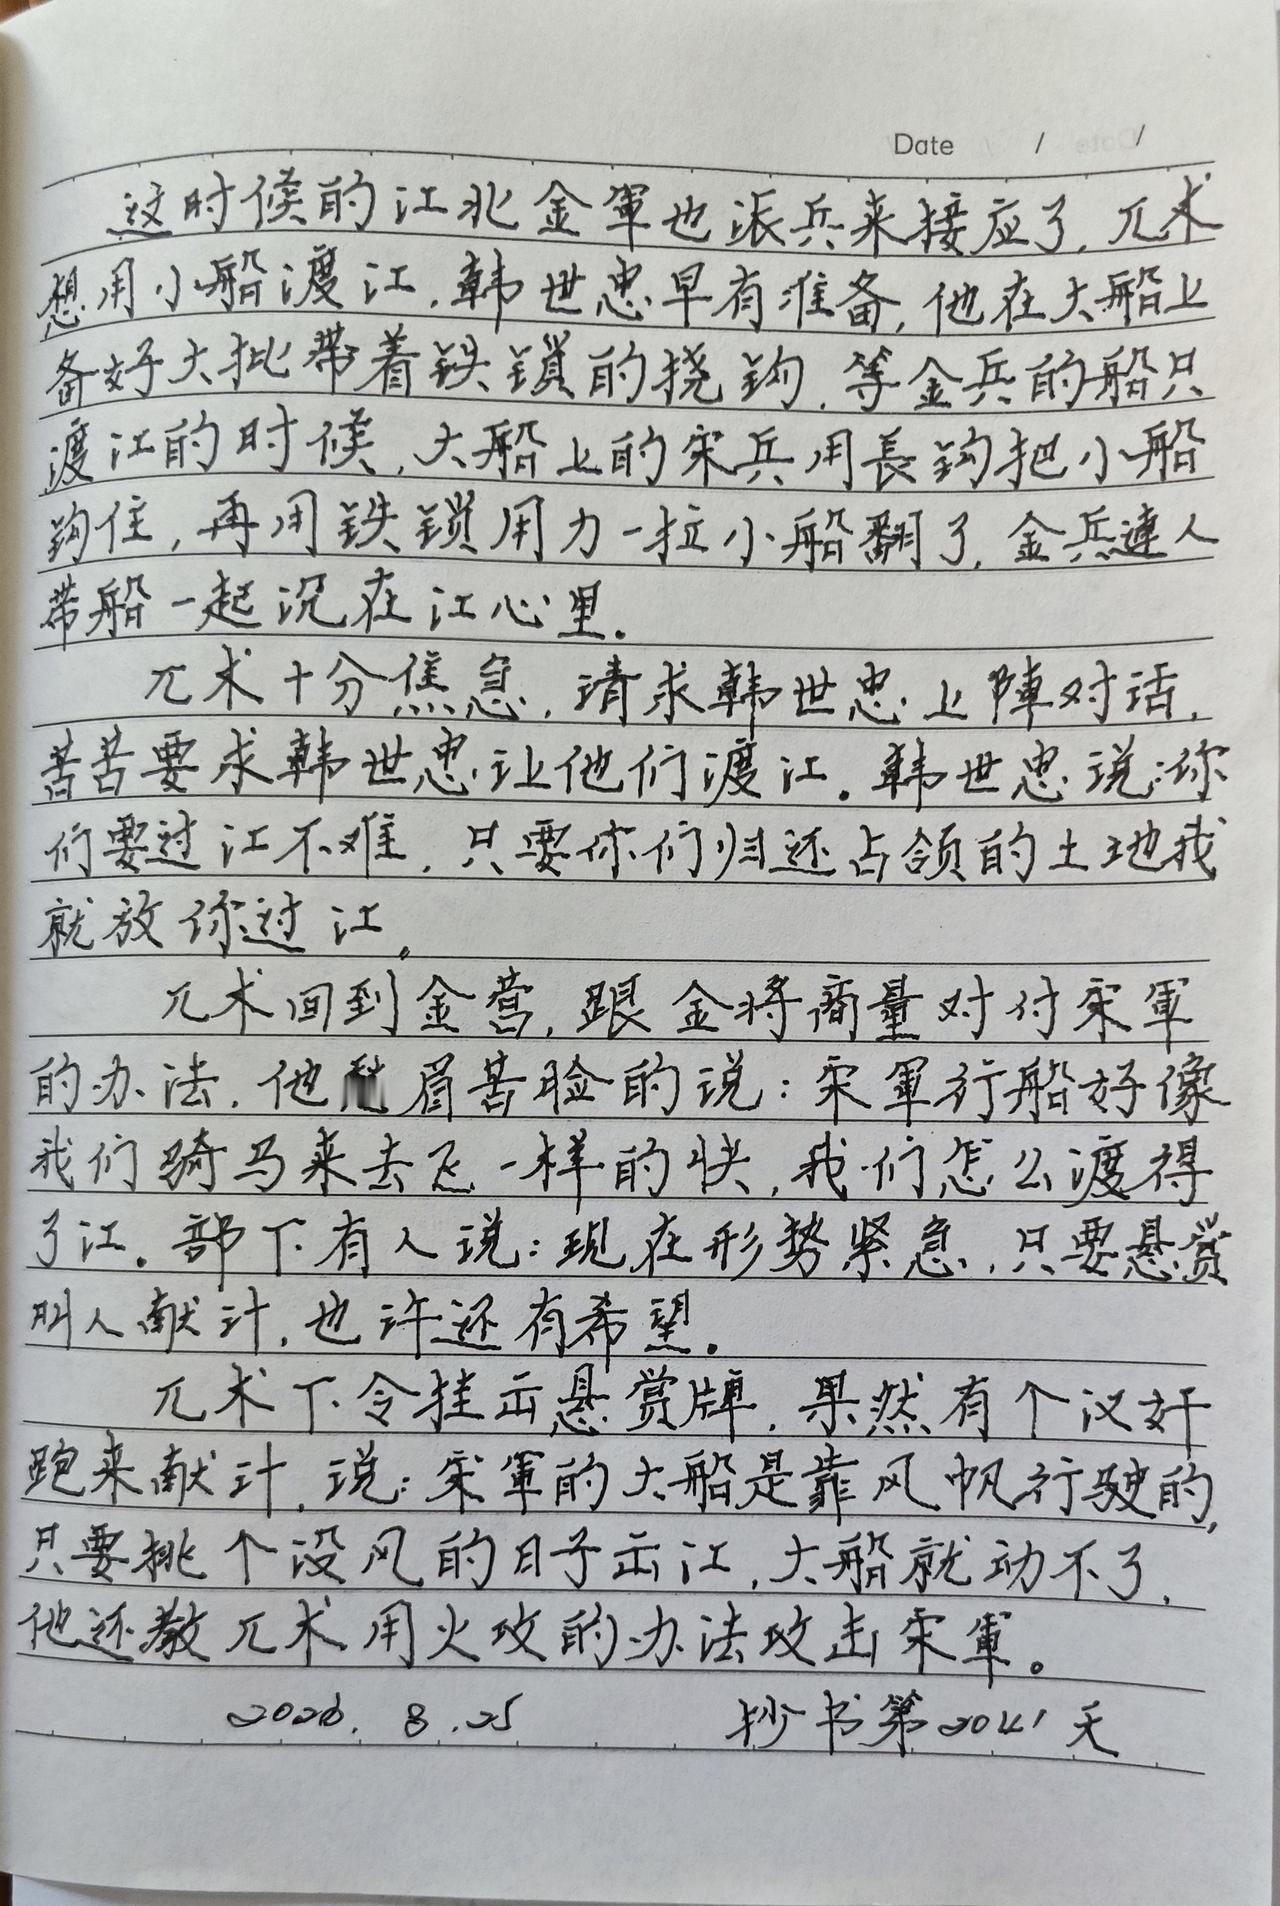 Date / /
这时候的江北金軍也派兵来接应了，兀术
想用小船渡江，韩世忠早有准备，他在大船上
备好大批带着铁锁的挠钩，等金兵的船只
渡江的时候，大船上的宋兵用長钩把小船
钩住，再用铁锁用力一拉小船翻了，金兵連人
带船一起沉在江心里。
兀术十分焦急，请求韩世忠上陣对话，
苦苦要求韩世忠让他们渡江。韩世忠说：你
们要过江不难，只要你们归还占领的土地我
就放你过江。
兀术回到金营，跟金将商量对付宋軍
的办法，他眉苦脸的说：宋軍行船好像
我们骑马来去飞一样的快，我们怎么渡得
了江。部下有人说：现在形势紧急，只要悬赏
叫人献计，也许还有希望。
兀术下令挂出悬赏牌，果然有个汉奸
跑来献计，说：宋軍的大船是靠风帆行驶的，
只要挑个没风的日子出江，大船就动不了，
他还教兀术用火攻的办法攻击宋軍。
8.25 抄书第2041天